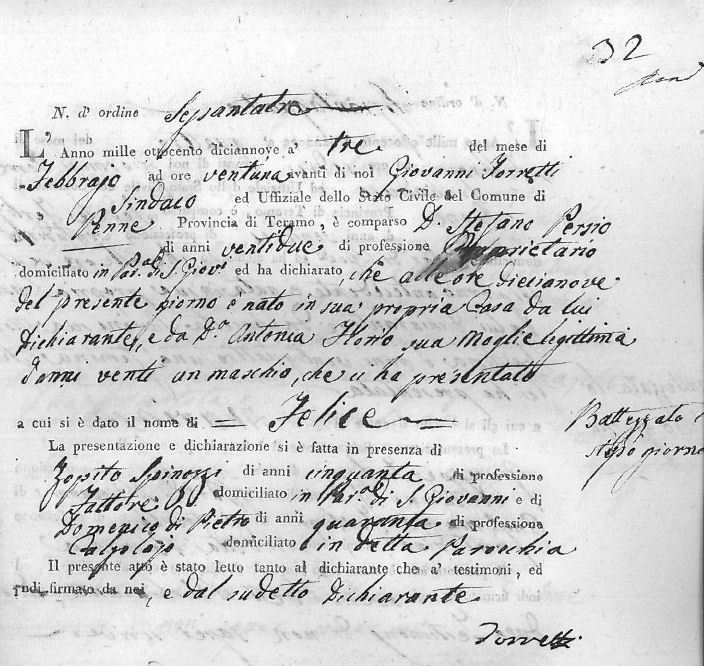 32
N. d' ordine Sessantatre
L' Anno mille ottocento diciannove a' tre del mese di
Febbrajo ad ore ventuna avanti di noi Giovanni Torretti
Sindaco ed Uffiziale dello Stato Civile del Comune di
Penne Provincia di Teramo, è comparso D. Stefano Persio
di anni ventidue di professione Proprietario
domiciliato in Par.a di S. Giov.i ed ha dichiarato, che alle ore diecianove
del presente giorno è nato in sua propria Casa da lui
Dichiarante, e da D.a Antonia Florio sua Moglie legittima
d'anni venti un maschio, che ci ha presentato
a cui si è dato il nome di = Felice =
Battezzato
stesso giorno
La presentazione e dichiarazione si è fatta in presenza di
Zopito Spinozzi di anni cinquanta di professione
Fattore domiciliato in Par.a di S. Giovanni e di
Domenico di Pietro di anni quaranta di professione
Calzolajo domiciliato in detta Parocchia
Il presente atto è stato letto tanto al dichiarante che a' testimoni, ed
indi firmato da noi, e dal sudetto Dichiarante
Torretti